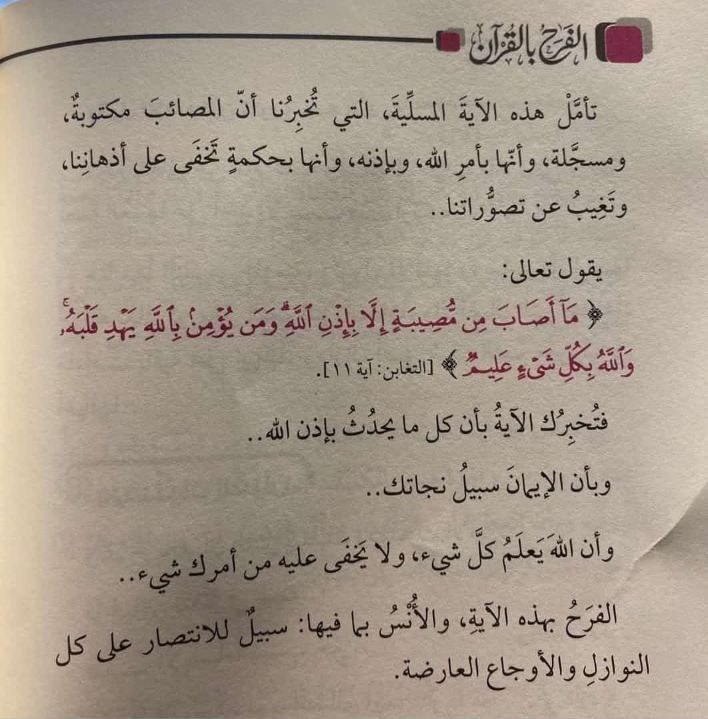 الفَرَحُ بالقُرْآن
تأمَّلْ هذه الآيةَ المسلِّيةَ، التي تُخبِرُنا أنّ المصائبَ مكتوبةٌ،
ومسجَّلة، وأنّها بأمرِ الله، وبإذنه، وأنها بحكمةٍ تَخفَى على أذهانِنا،
وتَغِيبُ عن تصوُّراتنا..
يقول تعالى:
﴿ مَآ أَصَابَ مِن مُّصِيبَةٍ إِلَّا بِإِذْنِ ٱللَّهِۗ وَمَن يُؤْمِنۢ بِٱللَّهِ يَهْدِ قَلْبَهُۥۚ
وَٱللَّهُ بِكُلِّ شَىْءٍ عَلِيمٌ ﴾ [التغابن: آية ١١].
فتُخبِرُك الآيةُ بأن كل ما يحدُثُ بإذن الله..
وبأن الإيمانَ سبيلُ نجاتك..
وأن اللهَ يَعلَمُ كلَّ شيء، ولا يَخفَى عليه من أمرك شيء..
الفرَحُ بهذه الآيةِ، والأُنْسُ بما فيها: سبيلٌ للانتصار على كل
النوازلِ والأوجاع العارضة.